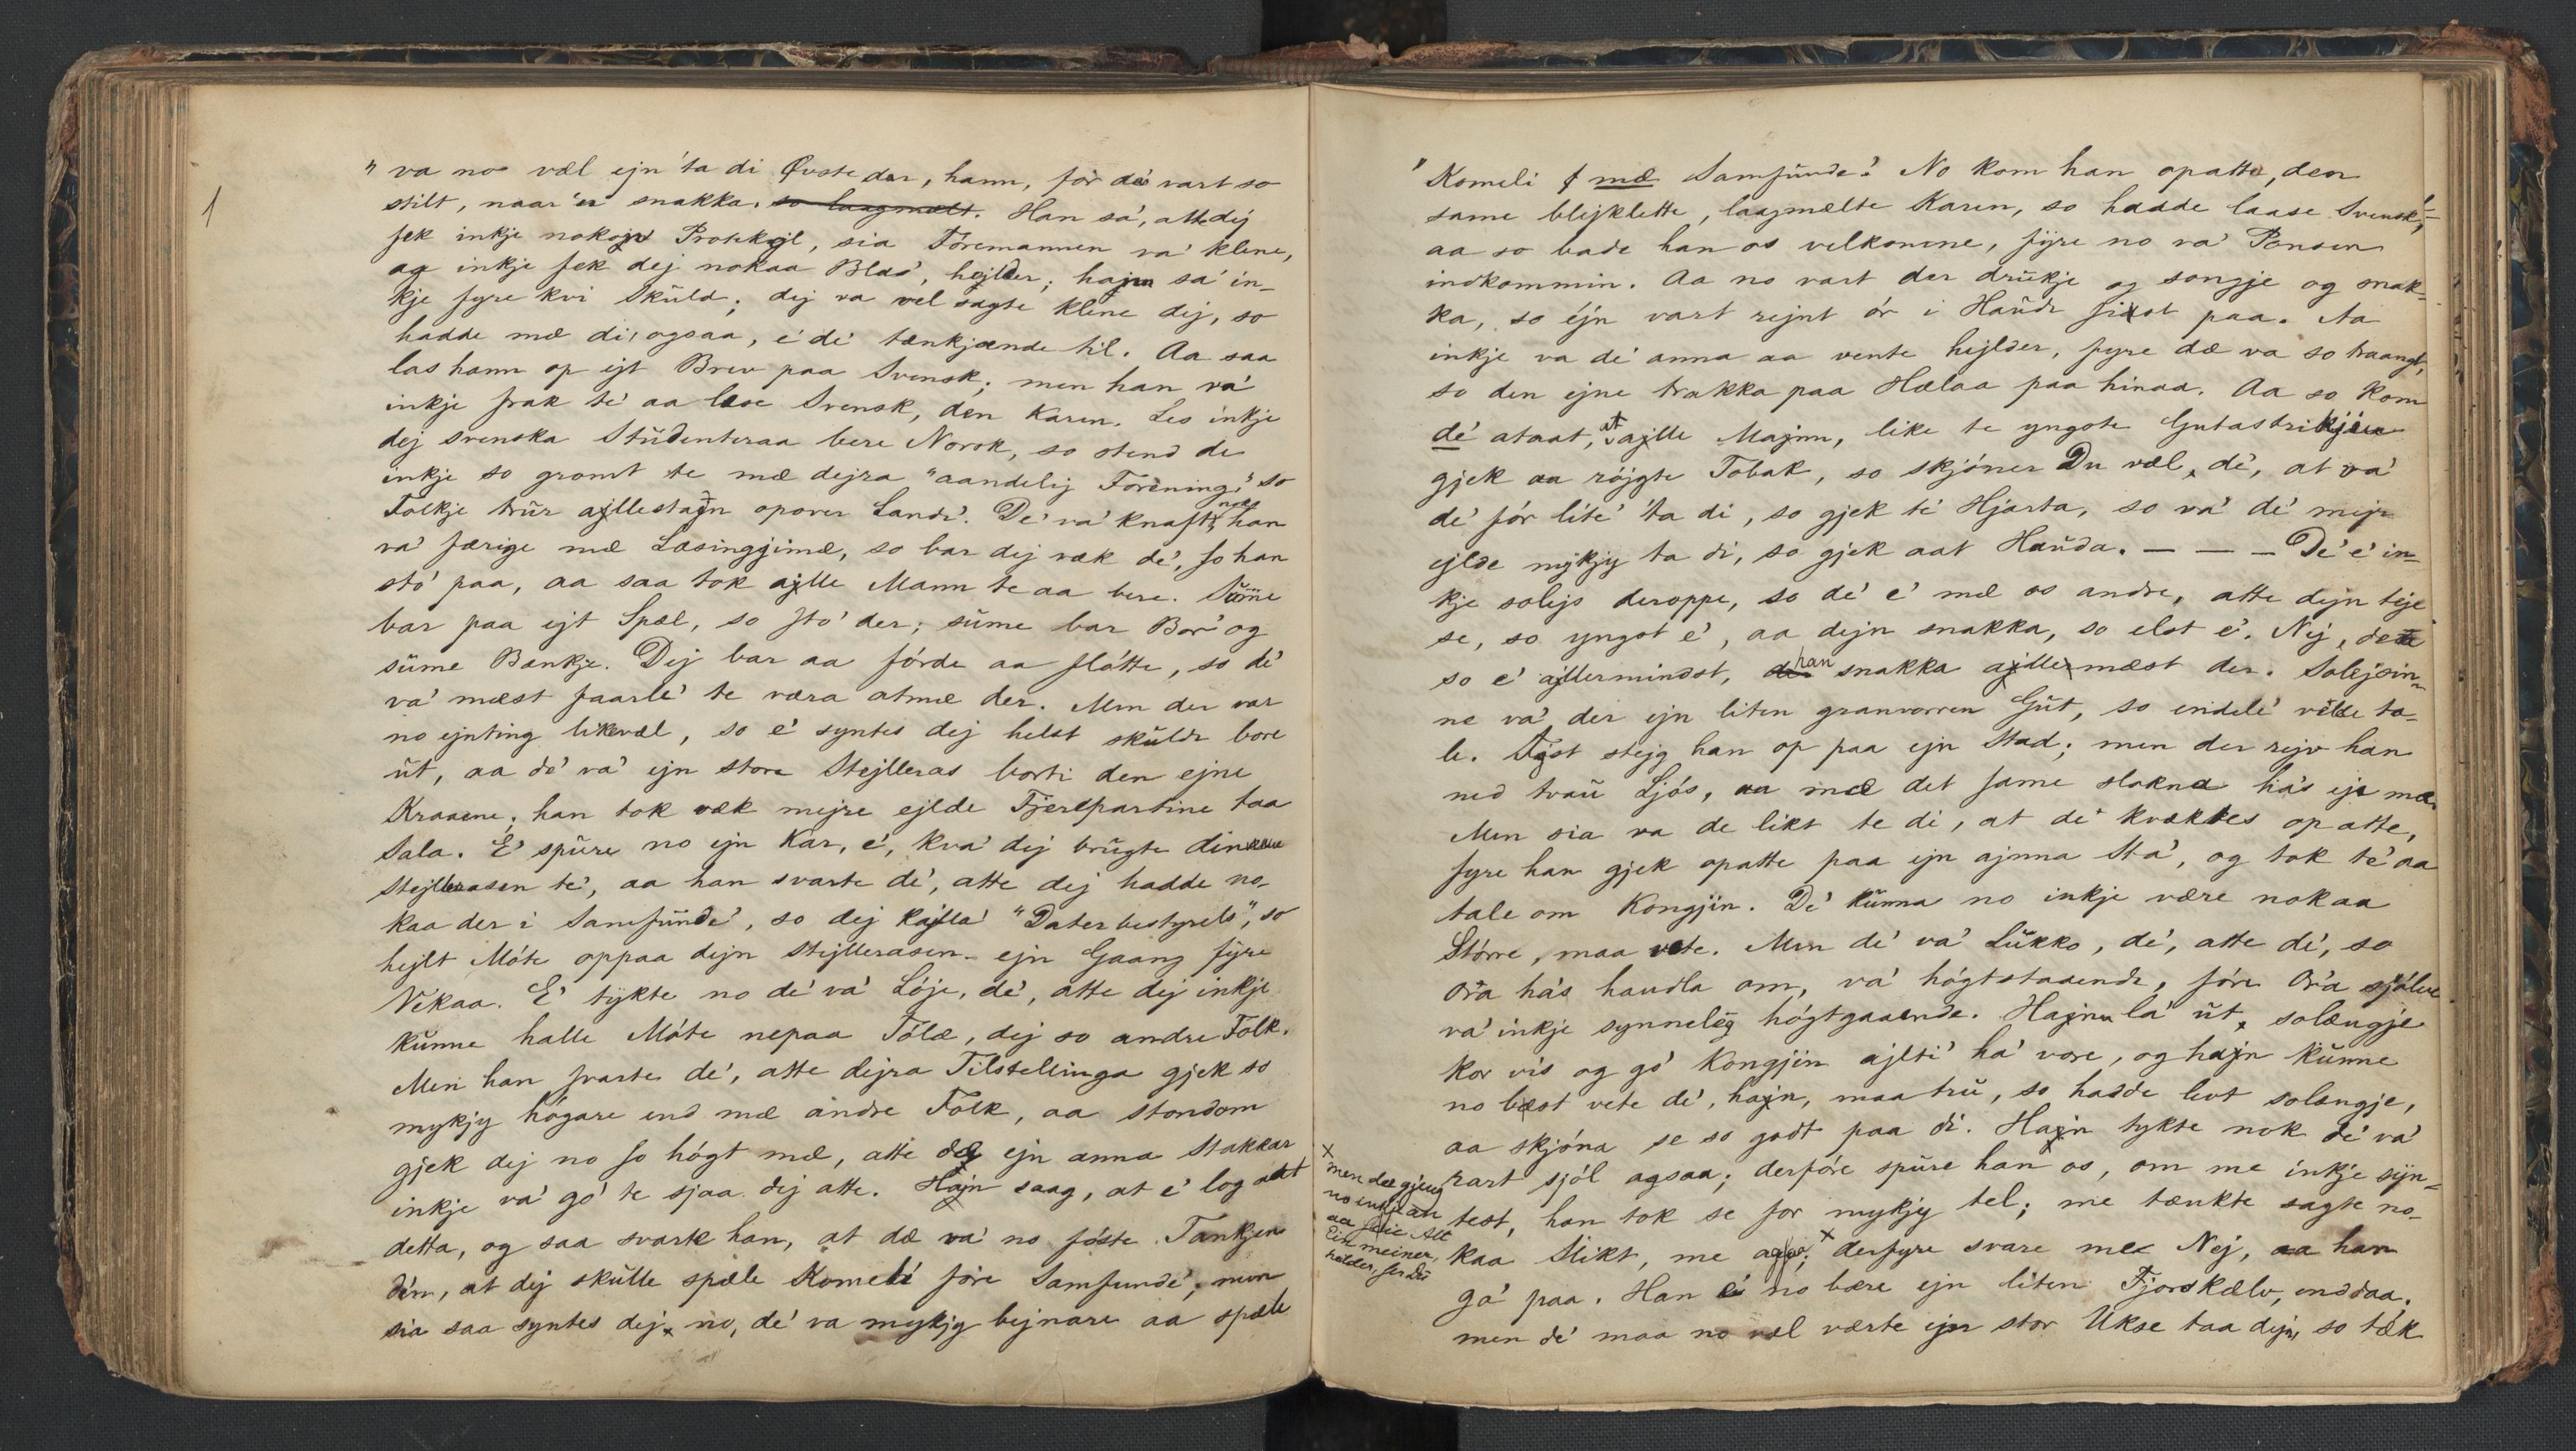 1
" va no væl ejn 'ta di Øvste der, hann, for dæ vart so
stilt, naar 'n snakka. so laagmælt. Han sa', atte dej
fek inkje nokojn Protokojl, sia Fóremannen va' klene,
og inkje fek dej nokaa Blad', hejlder; hajn sa' in-
kje fyre kvi Skuld; dej va vel sagte klene dej, so
hadde mæ di, ogsaa, é dé tænkjænde til. Aa saa
las hann op ejt Brev paa Svensk; men han va'
inkje frak té aa læse Svensk, den Karen. Les inkje
dej svenska Studenteraa bere Norsk, so stend de
inkje so gromt te mæ dejra "aandelig Forening," so
Folkje trur ajllestajn opover Landi. De' va' knaft, han
va' færige mæ Læsingjimæ, so bar dej væk dé, so han
sto' paa, aa saa tok ajlle Mann te aa bere. Sume
bar paa ejt Spæl, so sto' der; sume bar Bor' og
sume Bænkje. Dej bar aa fórde aa flótte, so dé
va' mæst faarle' te væra atmæ der. Men der var
no ejnting likevæl, so é syntes dej helst skulde bore
ut, aa dé va' ejn stora Stejlleras borti den ejne
Kraaene; han tok væk mejre ejlde Fjerepartine taa
Sala. É spure no ejn Kar, é, kva' dej brugte
Stejllerasen té, aa han svarte dé, atte dej hadde no-
kaa der i Samfunde', so dej kajlla' "Dater bestyrels", so
hejlt Móte oppaa dejn Stejllerasen ejn Gaang fyre
Vékaa. É tykte no dé va' Lóje, dé, atte dej inkje
kunne halle Móte nepaa Tólæ, dej so andre Folk.
Men han svarte dé, atte dejra Tilstellinga gjek so
mykjy hógare end mæ andre Folk, aa stondom
gjek dej no so hógt mæ, atte ejn anna Stakkar
inkje va' go' te sjaa dej atte. Hajn saag, at é log aat
detta, og saa svarte han, at dæ va' no fóste Tankjen
din, at dej skulle spæle Komeli fóre Samfunde', men
sia saa syntes dej no, dé va mykjy bejnare aa spæle
" Komeli mæ Samfunde." No kom han opatte, den
same blejklette, laagmælte Karen, so hadde laase Svensk,
aa so bade han os velkomne, fyre no va' Ponsen
indkommin. Aa no vart der drukje og songje og snak-
ka, so éjn vart rejnt ór i Haudi sist paa. Aa
inkje va dé anna aa vente hejlder, fyre dæ va so traangt,
so den ejne trakka paa Hælaa paa hinaa. Aa so kom
dé ataat, at ajlle Majnn, like te yngste
gjek aa rójgte Tobak, so skjóner Du væl, dé, at va'
dé fór lite' 'ta di, so gjek té Hjarta, so va' dé mejr
ejlde mykjy ta di, so gjek aat Hauda. — — — De' é in-
kje solejs deroppe, so dé é mæ os andre, atte dejn teje
se, so yngst é, aa dejn snakka, so elst é. Nej,
so é ajllermindst, han snakka ajllermæst der. Solejsin-
ne va' der ejn liten granvorren Gut, so endele' vilde ta-
le. Fyst stejg han op paa ejn Stad; men der rejv han
ned trau Ljós, aa mæ det same sloknæ
Men sia va de likt te di, at dé kvæktes op atte,
fyre han gjek opatte paa ejn ajnna Sta', og tok té aa
tale om Kongjin. De' kunna no inkje være nokaa
Stórre, maa vete. Men dé va' Lukko, dé, atte dé, so
Ora hás haudla om, va' hógtstaaende, fóre Ora sjólve
va' inkje synneleg hógtgaaende. Hajnn la' ut, solængje
kor vis og go' Kongjin ajlti' ha' vore, og hajn kunne
no bæst vete dé, hajn, maa tru, so hadde levt solængje,
aa skjóna se so godt paa di. Hajn tykte nok dé va'
rart sjól agsaa; derfóre spure han os, om me inkje syn-
test, han tok se for mykjy tel; me tænkte sagte no-
kaa Slikt, me derfyre svare me Nej, aa han
ga' paa. Han é no bære ejn liten Fjorskælv, enddaa,
men dé maa no væl værte ejn stor Ukse taa dejn, so tæk
× men dæ gjeng
no
aa Alt
Ein meiner,